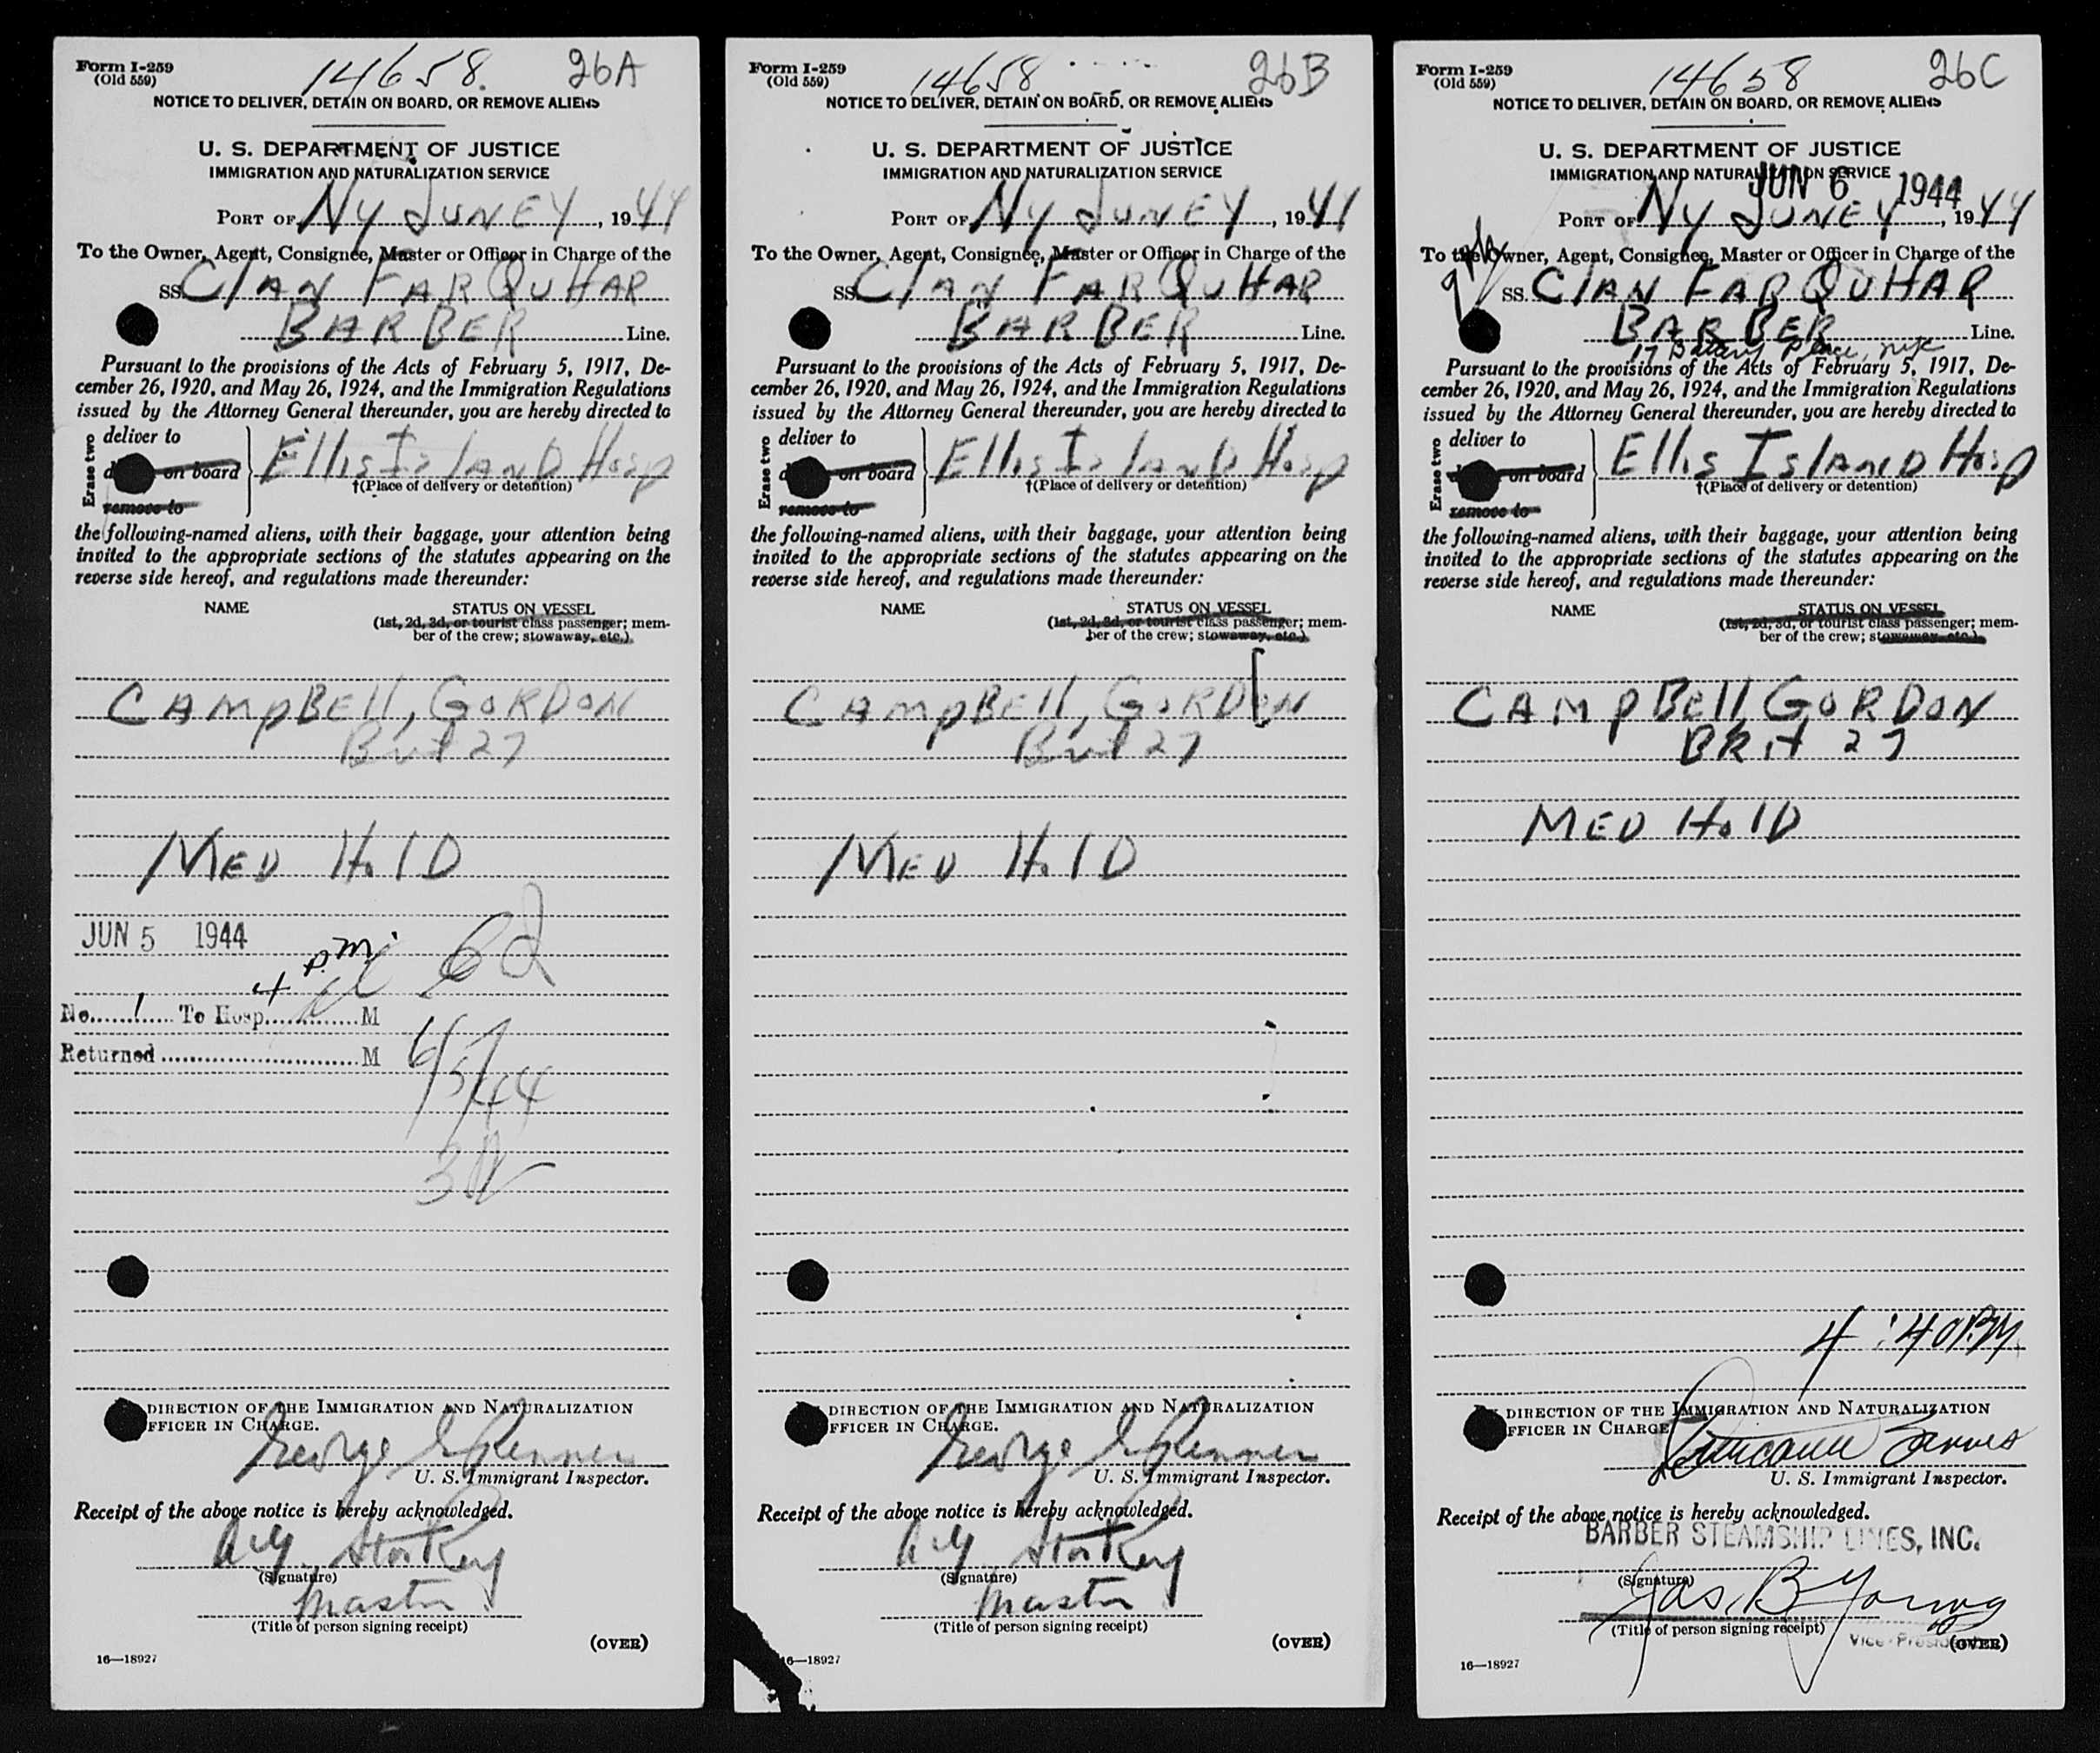 Form I-259
(Old 559)
14658.
26A
NOTICE TO DELIVER, DETAIN ON BOARD, OR REMOVE ALIENS
U. S. DEPARTMENT OF JUSTICE
IMMIGRATION AND NATURALIZATION SERVICE
PORT OF NY JUNE 4, 1944
To the Owner, Agent, Consignee, Master or Officer in Charge of the
SS. Clan FARQUHAR
BARBER Line.
Pursuant to the provisions of the Acts of February 5, 1917, De-
cember 26, 1920, and May 26, 1924, and the Immigration Regulations
issued by the Attorney General thereunder, you are hereby directed to
Erase two
deliver to
on board
remove to
Ellis Island Hosp
†(Place of delivery or detention)
the following-named aliens, with their baggage, your attention being
invited to the appropriate sections of the statutes appearing on the
reverse side hereof, and regulations made thereunder:
NAME
STATUS ON VESSEL
(1st, 2d, 3d, or tourist class passenger; mem-
ber of the crew; stowaway, etc.)
CAMpBEll, GORDON
Brit 27
MED HolD
JUN 5 1944
4 pm.
No. 1 To Hosp. M
Returned M
6/5/44
DIRECTION OF THE IMMIGRATION AND NATURALIZATION
FFICER IN CHARGE.
George
U. S. Immigrant Inspector.
Receipt of the above notice is hereby acknowledged.
Storkey
(Signature)
Master
(Title of person signing receipt)
(OVER)
16—18927
Form I-259
(Old 559)
14658
26B
NOTICE TO DELIVER, DETAIN ON BOARD, OR REMOVE ALIENS
U. S. DEPARTMENT OF JUSTICE
IMMIGRATION AND NATURALIZATION SERVICE
PORT OF NY JUNE 4, 1944
To the Owner, Agent, Consignee, Master or Officer in Charge of the
SS. Clan FARQUHAR
BARBER Line.
Pursuant to the provisions of the Acts of February 5, 1917, De-
cember 26, 1920, and May 26, 1924, and the Immigration Regulations
issued by the Attorney General thereunder, you are hereby directed to
Erase two
deliver to
on board
remove to
Ellis Island Hosp
†(Place of delivery or detention)
the following-named aliens, with their baggage, your attention being
invited to the appropriate sections of the statutes appearing on the
reverse side hereof, and regulations made thereunder:
NAME
STATUS ON VESSEL
(1st, 2d, 3d, or tourist class passenger; mem-
ber of the crew; stowaway, etc.)
CAMpBEll, GORDON
Brit 27
MED HolD
DIRECTION OF THE IMMIGRATION AND NATURALIZATION
FFICER IN CHARGE.
George
U. S. Immigrant Inspector.
Receipt of the above notice is hereby acknowledged.
Storkey
(Signature)
Master
(Title of person signing receipt)
(OVER)
16—18927
Form I-259
(Old 559)
14658
26C
NOTICE TO DELIVER, DETAIN ON BOARD, OR REMOVE ALIENS
U. S. DEPARTMENT OF JUSTICE
IMMIGRATION AND NATURALIZATION SERVICE
JUN 6 1944
PORT OF NY JUNE 4, 1944
To the Owner, Agent, Consignee, Master or Officer in Charge of the
SS. ClAN FARQUHAR
BARBER Line.
17 Battery Place, nyc
Pursuant to the provisions of the Acts of February 5, 1917, De-
cember 26, 1920, and May 26, 1924, and the Immigration Regulations
issued by the Attorney General thereunder, you are hereby directed to
Erase two
deliver to
on board
remove to
Ellis Island Hosp
†(Place of delivery or detention)
the following-named aliens, with their baggage, your attention being
invited to the appropriate sections of the statutes appearing on the
reverse side hereof, and regulations made thereunder:
NAME
STATUS ON VESSEL
(1st, 2d, 3d, or tourist class passenger; mem-
ber of the crew; stowaway, etc.)
CAMpBEll, GORDON
BRit 27
MED HolD
4:40 PM.
DIRECTION OF THE IMMIGRATION AND NATURALIZATION
FFICER IN CHARGE
U. S. Immigrant Inspector.
Receipt of the above notice is hereby acknowledged.
BARBER STEAMSHIP LINES, INC.
(Signature)
Jas. B Young
(Title of person signing receipt)
Vice-President
(OVER)
16—18927